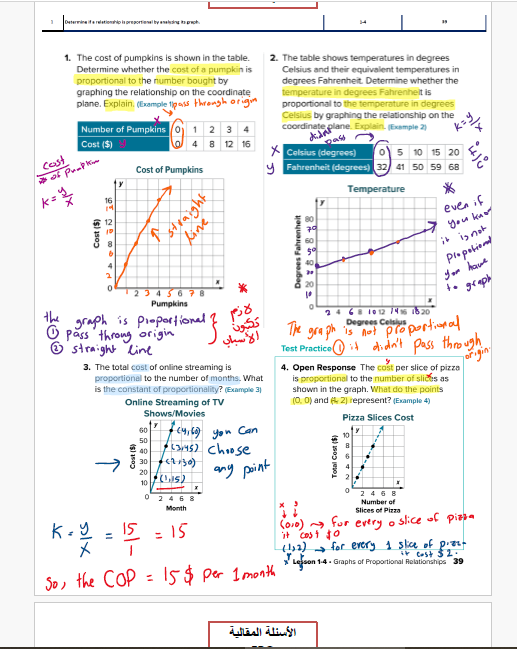 1 Determine if a relationship is proportional by analyzing its graph. 1-4 39
1. The cost of pumpkins is shown in the table.
Determine whether the cost of a pumpkin is
proportional to the number bought by
graphing the relationship on the coordinate
plane. Explain. (Example 1) pass through origin
x
Number of Pumpkins 0 1 2 3 4
Cost ($) y 0 4 8 12 16
cost
# of Pumpkin
K = y/x
Cost of Pumpkins
y
16
14
12
10
8
6
4
2
0
2 3 4 5 6 7 8
x
Cost ($)
Pumpkins
straight
line
the graph is proportional
① pass throug origin
② straight line
لازم
2. The table shows temperatures in degrees
Celsius and their equivalent temperatures in
degrees Fahrenheit. Determine whether the
temperature in degrees Fahrenheit is
proportional to the temperature in degrees
Celsius by graphing the relationship on the
coordinate plane. Explain. (Example 2)
K = y/x
didn't
pass
x Celsius (degrees) 0 5 10 15 20
y Fahrenheit (degrees) 32 41 50 59 68
F°
C°
Temperature
y
80
70
60
50
40
30
20
10
0
2 4 6 8 10 12 14 16 18 20
x
Degrees Fahrenheit
Degrees Celsius
even if
you know
it is not
propotional
you have
to graph
The graph is not proportional
Test Practice ① it didn't pass through
origin
3. The total cost of online streaming is
proportional to the number of months. What
is the constant of proportionality? (Example 3)
Online Streaming of TV
Shows/Movies
y
60
50
40
30
20
10
0
2 4 6 8
x
Cost ($)
Month
(4,60)
(3,45)
(2,30)
(1,15)
you can
choose
any point
K = y/x = 15/1 = 15
So, the COP = 15 $ per 1 month
4. Open Response The cost per slice of pizza
is proportional to the number of slices as
shown in the graph. What do the points
(0, 0) and (1, 2) represent? (Example 4)
Pizza Slices Cost
y
10
8
6
4
2
0
2 4 6 8
x
Total Cost ($)
Number of
Slices of Pizza
x y
(0,0) → for every 0 slice of pizza
it cost $0
(1,2) → for every 1 slice of pizza
it cost $2.
x y
Lesson 1-4 • Graphs of Proportional Relationships 39
الأسئلة المقالية